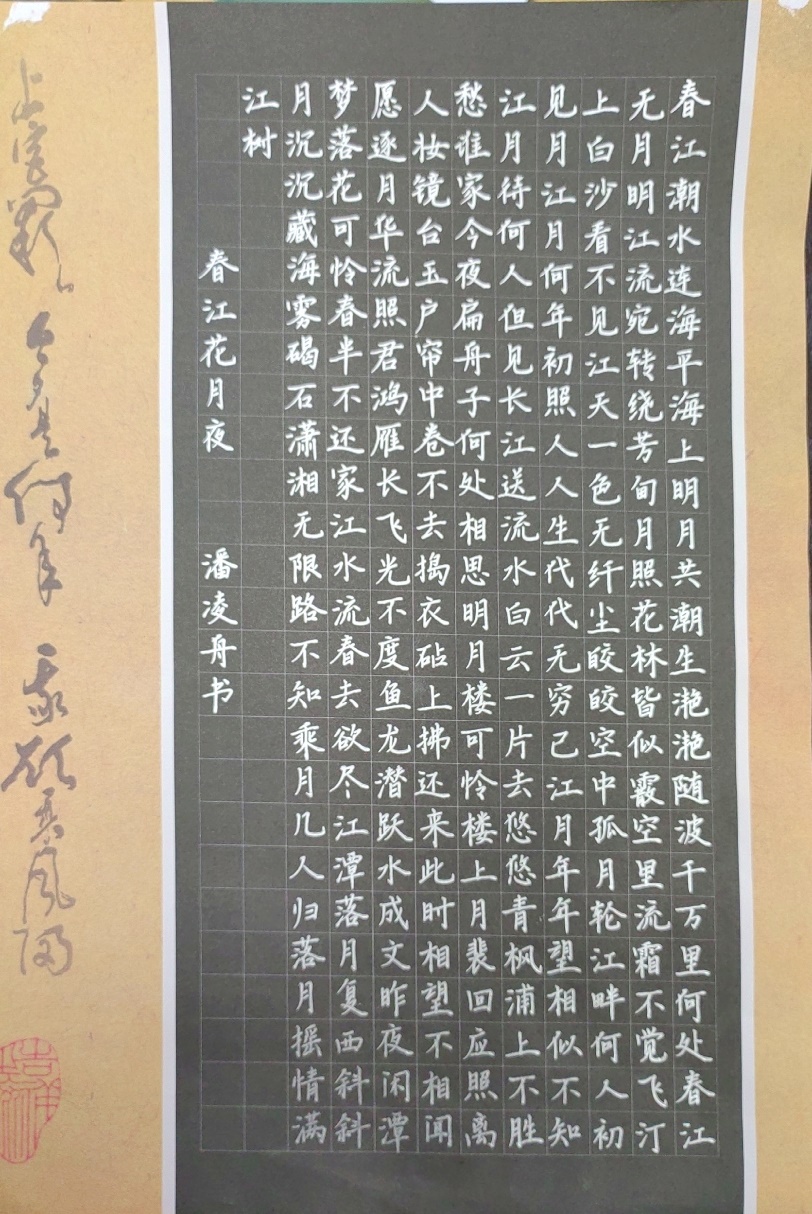 春江潮水连海平海上明月共潮生滟滟随波千万里何处春江
无月明江流宛转绕芳甸月照花林皆似霰空里流霜不觉飞汀
上白沙看不见江天一色无纤尘皎皎空中孤月轮江畔何人初
见月江月何年初照人人生代代无穷己江月年年望相似不知
江月待何人但见长江送流水白云一片去悠悠青枫浦上不胜
愁谁家今夜扁舟子何处相思明月楼可怜楼上月裴回应照离
人妆镜台玉户帘中卷不去捣衣砧上拂还来此时相望不相闻
愿逐月华流照君鸿雁长飞光不度鱼龙潜跃水成文昨夜闲潭
梦落花可怜春半不还家江水流春去欲尽江潭落月复西斜斜
月沉沉藏海雾碣石潇湘无限路不知乘月几人归落月摇情满
江树
春江花月夜 潘凌舟书
上宫阙 今夕是何年 我欲乘风归